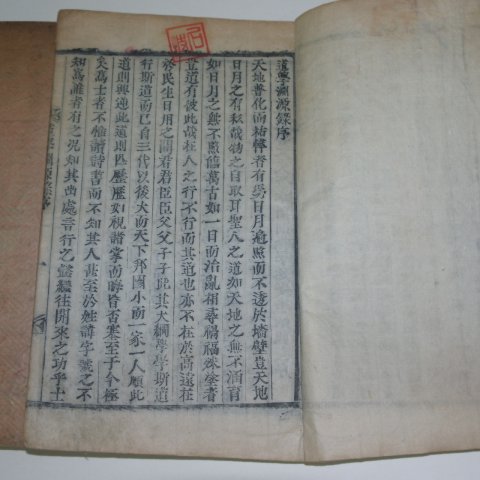 道學淵源錄序
天地普化而枯悴者有焉日月遍照而不透於墻壁豈天地
日月之有私哉物之自取耳聖人之道如天地之無不涵育
如日月之無不照臨萬古如一日而治亂相尋禍福殊塗者
豈道有彼此哉在人之行不行而其道也亦不在於高遠在
於民生日用之間君君臣臣父父子子此其大綱學學斯道
行斯道而已自三代以後大而天下邦國小而一家一人順此
道則興逆此道則匹歷歷如視諸掌而晦盲否塞至于今極
矣爲士者不惟讀詩書而不知其人甚至於姓諱字號之不
知爲誰者有之況知其出處言行之盛繼往開來之功乎士